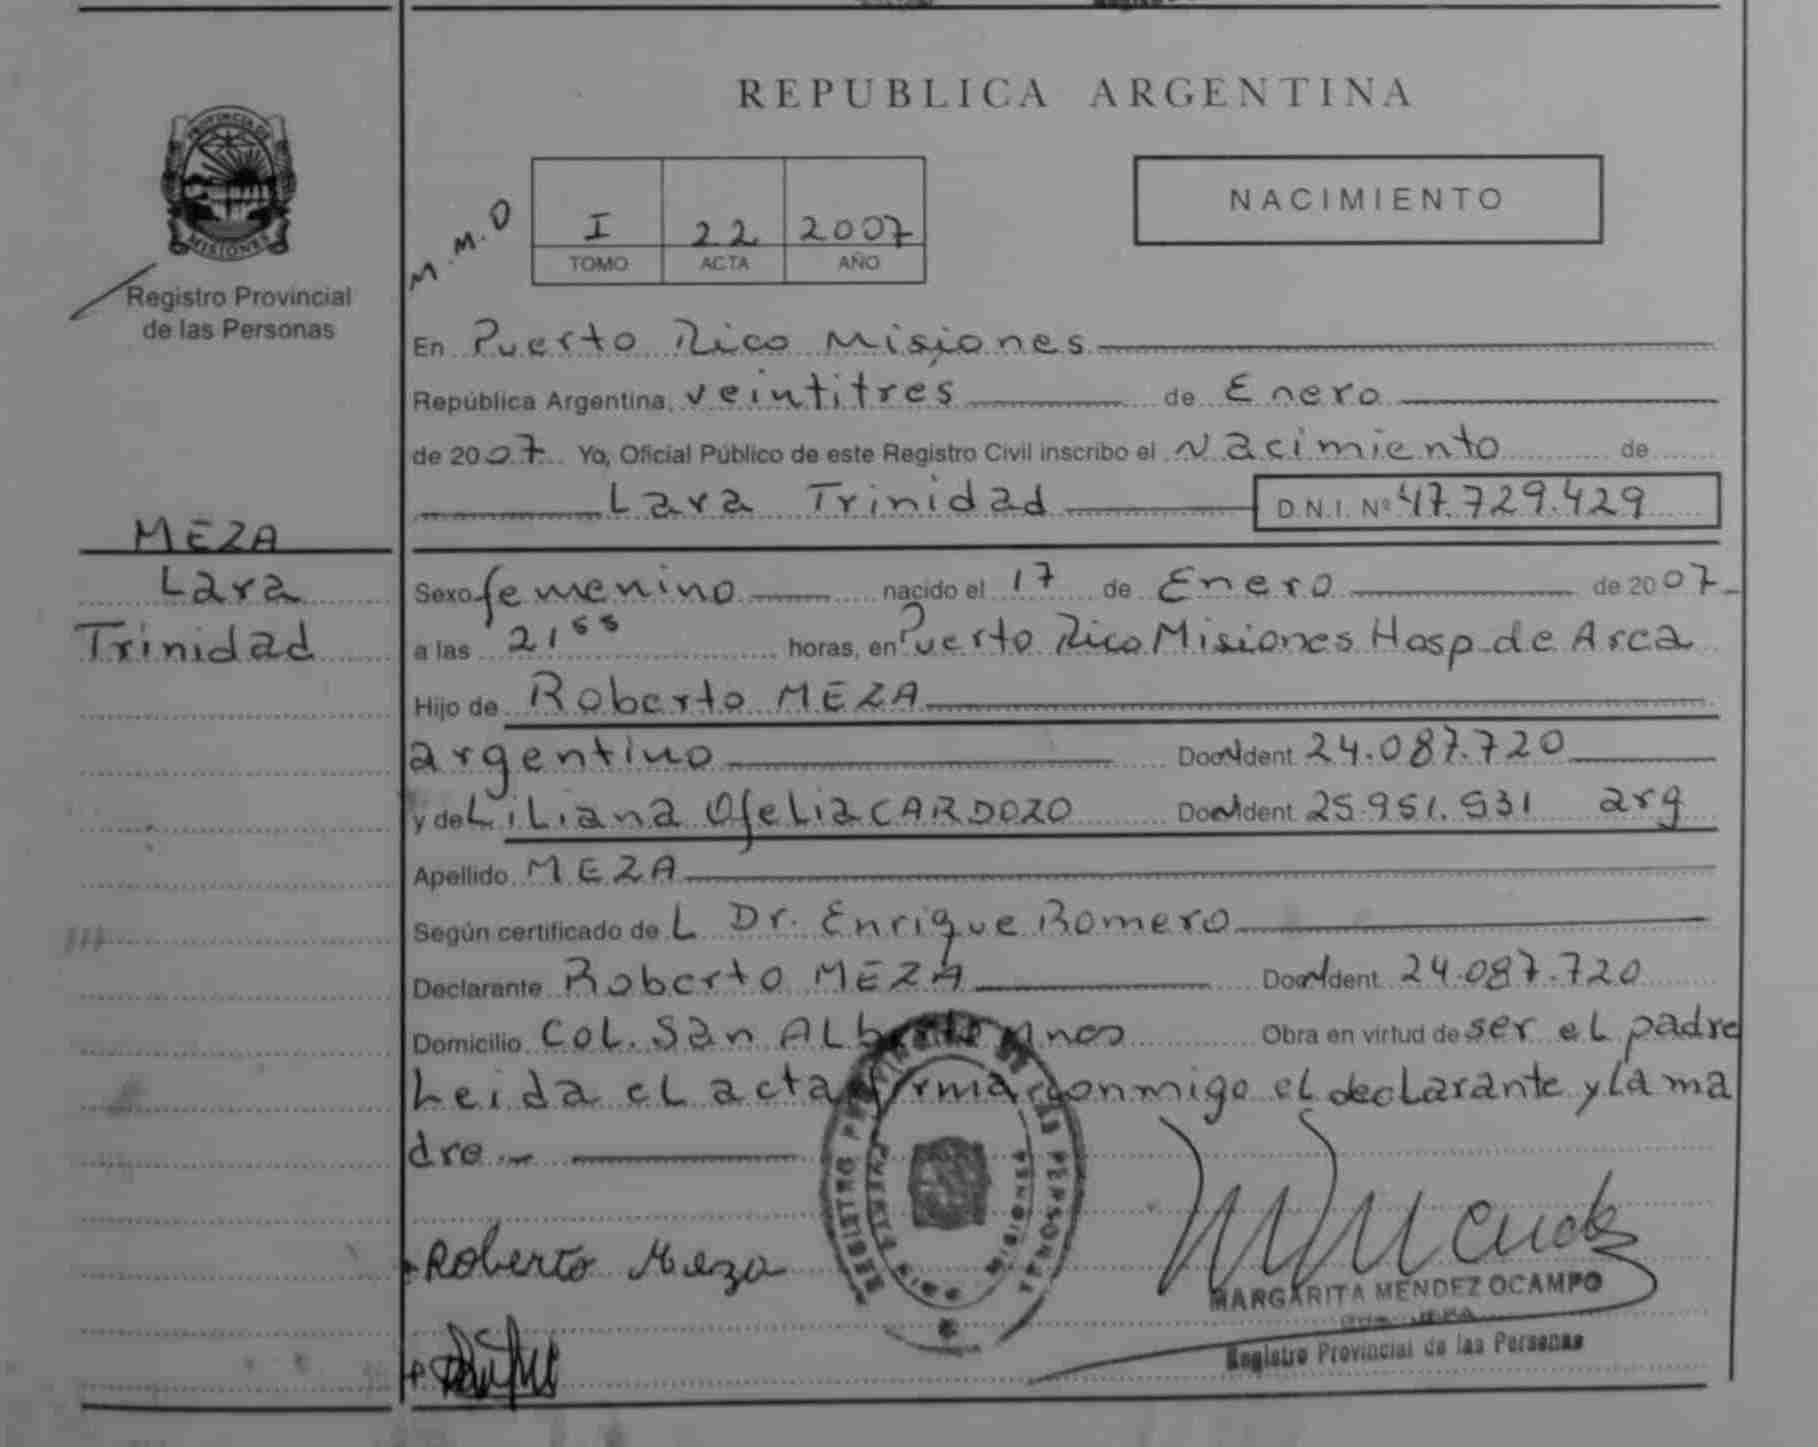 REPUBLICA ARGENTINA
PROVINCIA DE
MISIONES
Registro Provincial
de las Personas
M.M.O
I 22 2007
TOMO ACTA AÑO
NACIMIENTO
En Puerto Rico Misiones
República Argentina, veintitres de Enero
de 2007 Yo, Oficial Público de este Registro Civil inscribo el Nacimiento de
Lara Trinidad D.N.I. Nº 47.729.429
MEZA
Lara
Trinidad
Sexo femenino nacido el 17 de Enero de 2007
a las 21 55 horas, en Puerto Rico Misiones Hosp. de Area
Hijo de Roberto MEZA
argentino Doc. Ident. 24.087.720
y de Liliana Ofelia CARDOZO Doc. Ident. 25.951.531 arg
Apellido MEZA
Según certificado de L Dr. Enrique Romero
Declarante Roberto MEZA Doc. Ident. 24.087.720
Domicilio Col. San Alberto Mnes Obra en virtud de ser el padre
Leida el acta firma conmigo el declarante y la ma
dre
REGISTRO PROVINCIAL DE LAS PERSONAS
MISIONES
Roberto Meza
MARGARITA MENDEZ OCAMPO
Registro Provincial de las Personas